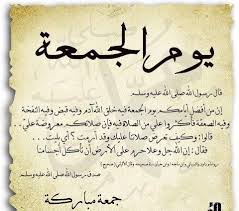 يوم الجمعة
قال رسول الله صلى الله عليه وسلم
إن من أفضل أيامكم يوم الجمعة فيه خلق الله آدم وفيه قبض وفيه النفخة
وفيه الصعقة فأكثروا علي من الصلاة فيه فإن صلاتكم معروضة علي
قالوا: وكيف تعرض صلاتنا عليك وقد أرمت؟ أي بليت
فقال: إن الله جل وعلا حرم على الأرض أن تأكل أجسامنا
صدق رسول الله صلى الله عليه وسلم
جمعة مباركة